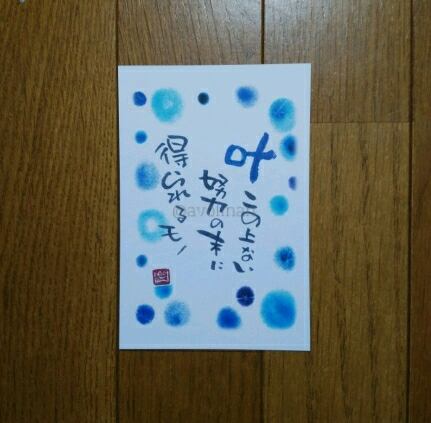 叶
この上ない
努力の末に
得られるモノ